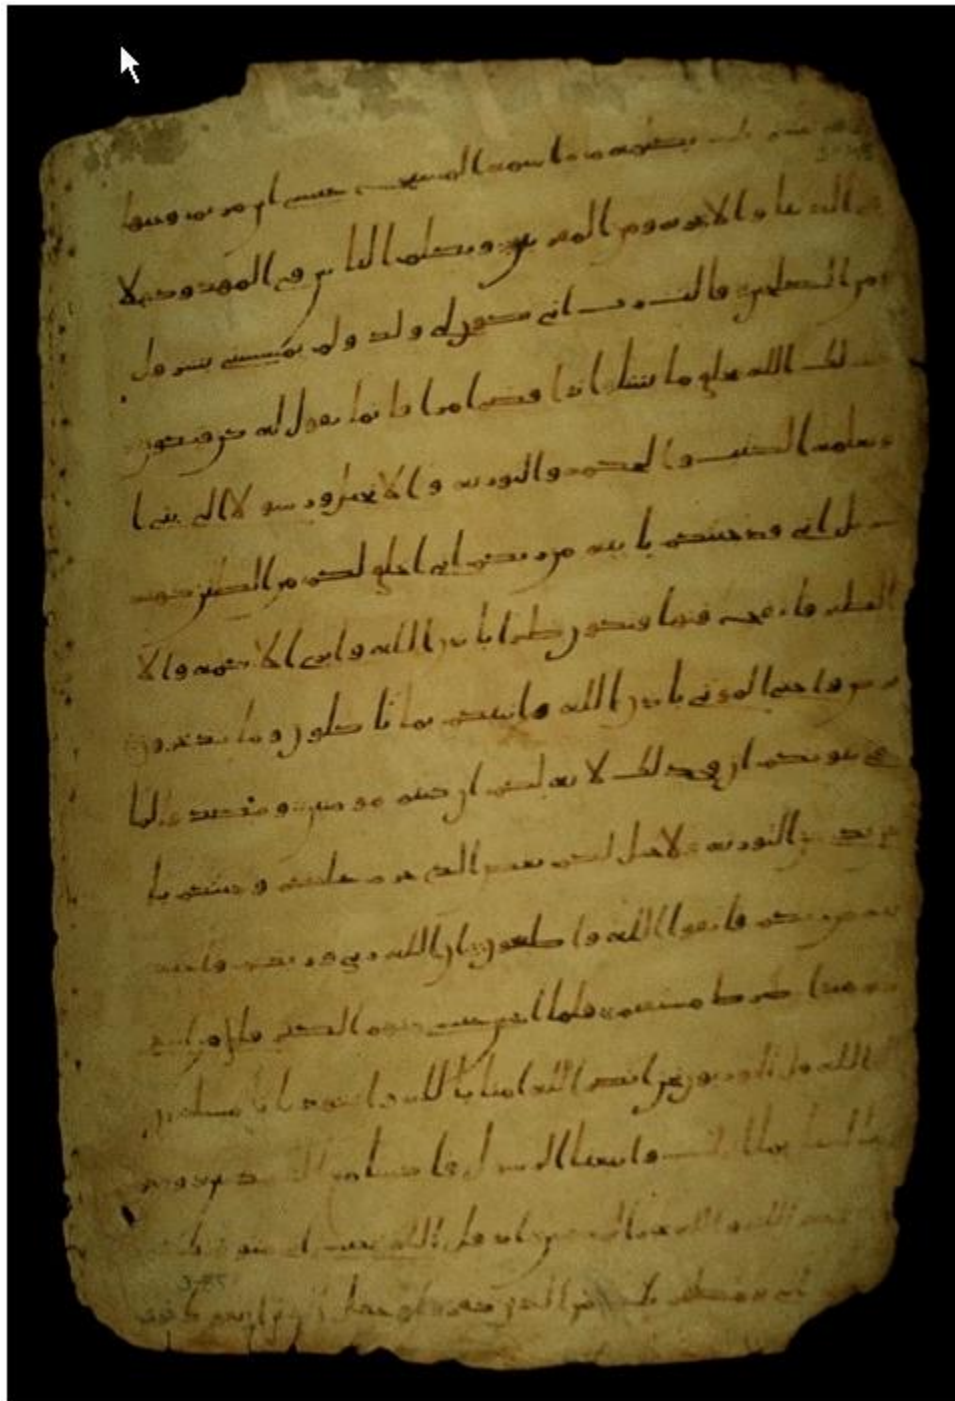 بكلمة منه اسمه المسيح عيسى ابن مريم وجيها
في الدنيا والاخرة ومن المقربين ويكلم الناس في المهد وكهلا
ومن الصلحين قالت رب انى يكون لي ولد ولم يمسسني بشر قل
كذلك الله يخلق ما يشا اذا قضى امرا فانما يقول له كن فيكون
ويعلمه الكتب والحكمة والتورية والانجيل ورسولا الى بني ا
سريل اني قد جيتكم باية من ربكم اني اخلق لكم من الطين كهية
الطير فانفخ فيها فيكون طيرا باذن الله وابرى الاكمه والا
برص واحي الموتى باذن الله وانبيكم بما تاكلون وما تدخرون
في بيوتكم ان في ذلك لاية لكم ان كنتم مومنين ومصدقا لما
بين يدي من التورية ولاحل لكم بعض الذي حرم عليكم وجيتكم با
ية من ربكم فاتقوا الله واطيعون ان الله ربي وربكم فاعبد
وه هذا صرط مستقيم فلما احس عيسى منهم الكفر قل من انصري
الى الله قل الحواريون نحن انصر الله امنا بالله واشهد بانا مسلمون
ربنا امنا بما انزلت واتبعنا الرسول فاكتبنا مع الشهدين ومكروا
ومكر الله والله خير المكرين اذ قل الله يعيسى اني متوفيك
ومطهرك من الذين كفروا وجعل الذين